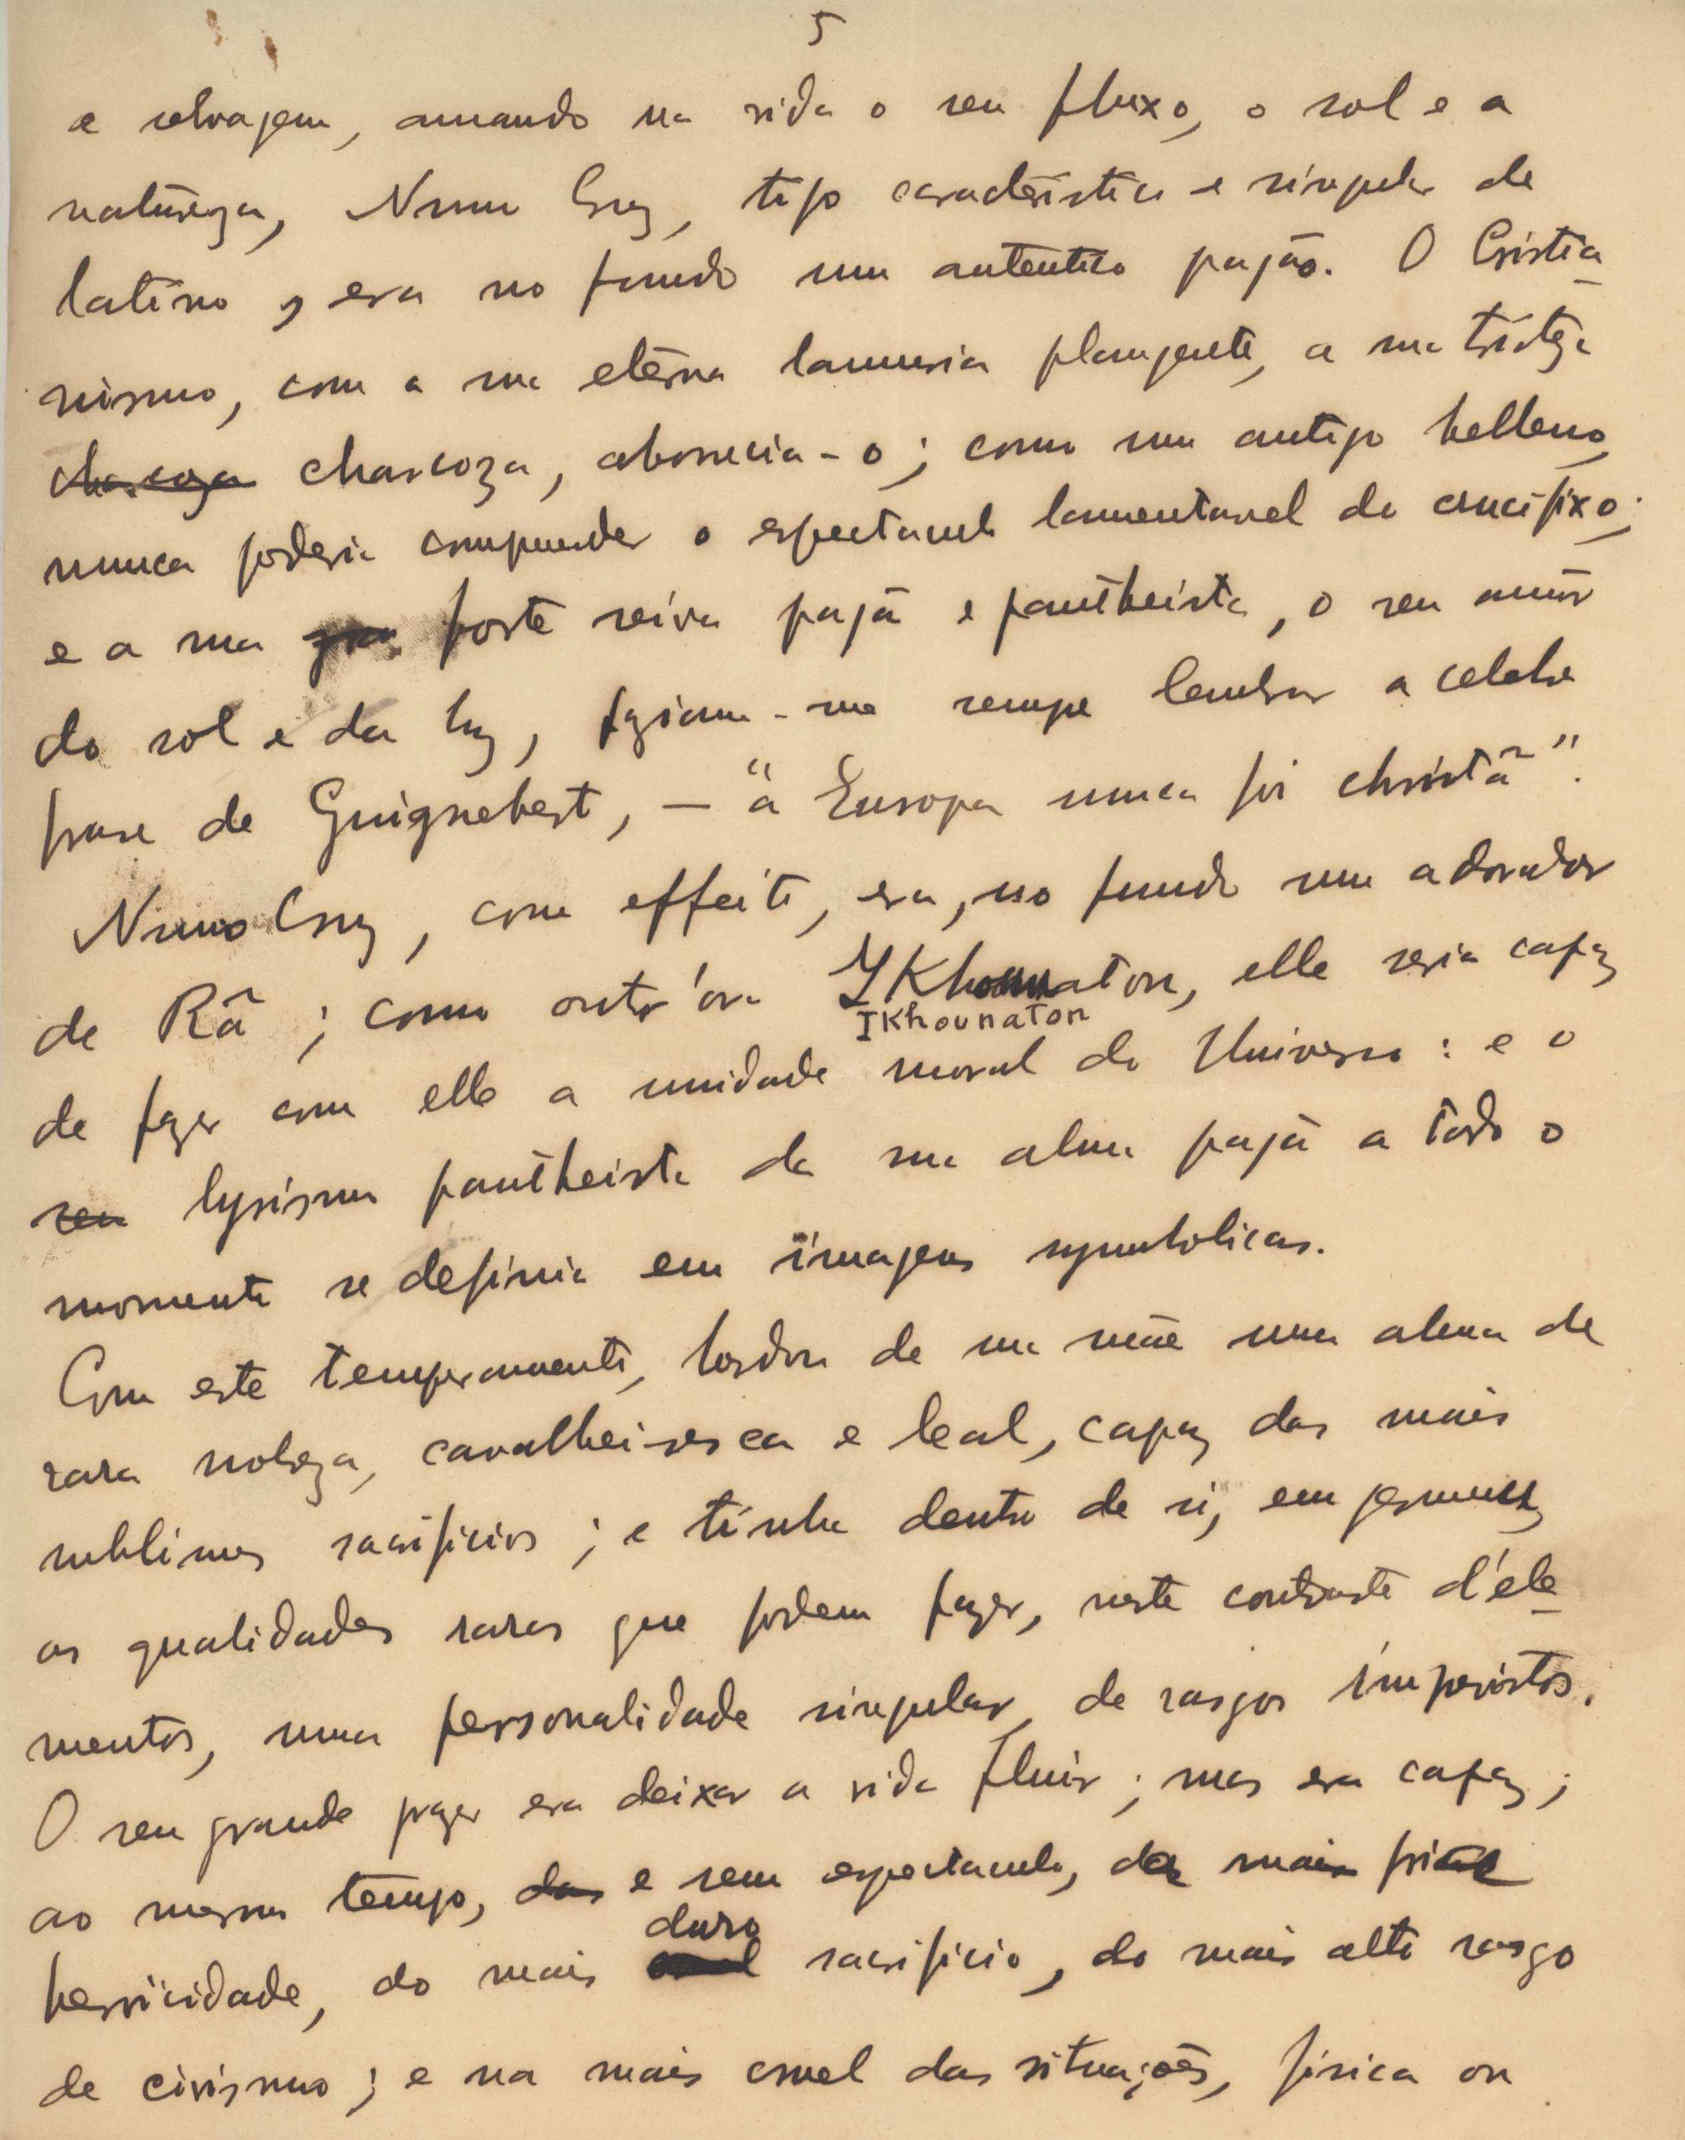 5
e selvagem, amando na vida o seu fluxo, o sol e a
natureza, Nuno Cruz, tipo caracteristico e singular de
latino, era no fundo um autentico pagão. O Cristia-
nismo, com a sua eterna lamuria plangente, a sua tristeza
chascoza chascoza, aborrecia-o; como um antigo helleno,
nunca poderia comprender o espectaculo lamentavel do crucifixo;
e a sua forte seiva pagã e pantheista, o seu amôr
do sol e da luz, faziam-me sempre lembrar a celebre
frase de Guignebert, — "a Europa nunca foi christã".
Nuno Cruz, com effeito, era, no fundo um adorador
de Râ; como outr'ora IKhounaton, elle seria capaz
IKhounaton
de fazer com elle a unidade moral do Universo: e o
seu lyrismo pantheista da sua alma pagã a todo o
momento se definia em imagens symbolicas.
Com este temperamento, herdou de sua mãe uma alma de
rara nobreza, cavalheiresca e leal, capaz dos mais
sublimes sacrificios; e tinha dentro de si, em germen,
as qualidades raras que podem fazer, neste contraste d'ele-
mentos, uma personalidade singular, de rasgos imprevistos.
O seu grande prazer era deixar a vida fluir; mas era capaz,
ao mesmo tempo, das e sem espectaculo, da mais
heroicidade, do mais duro sacrificio, do mais alto rasgo
de civismo; e na mais cruel das situações, fisica ou